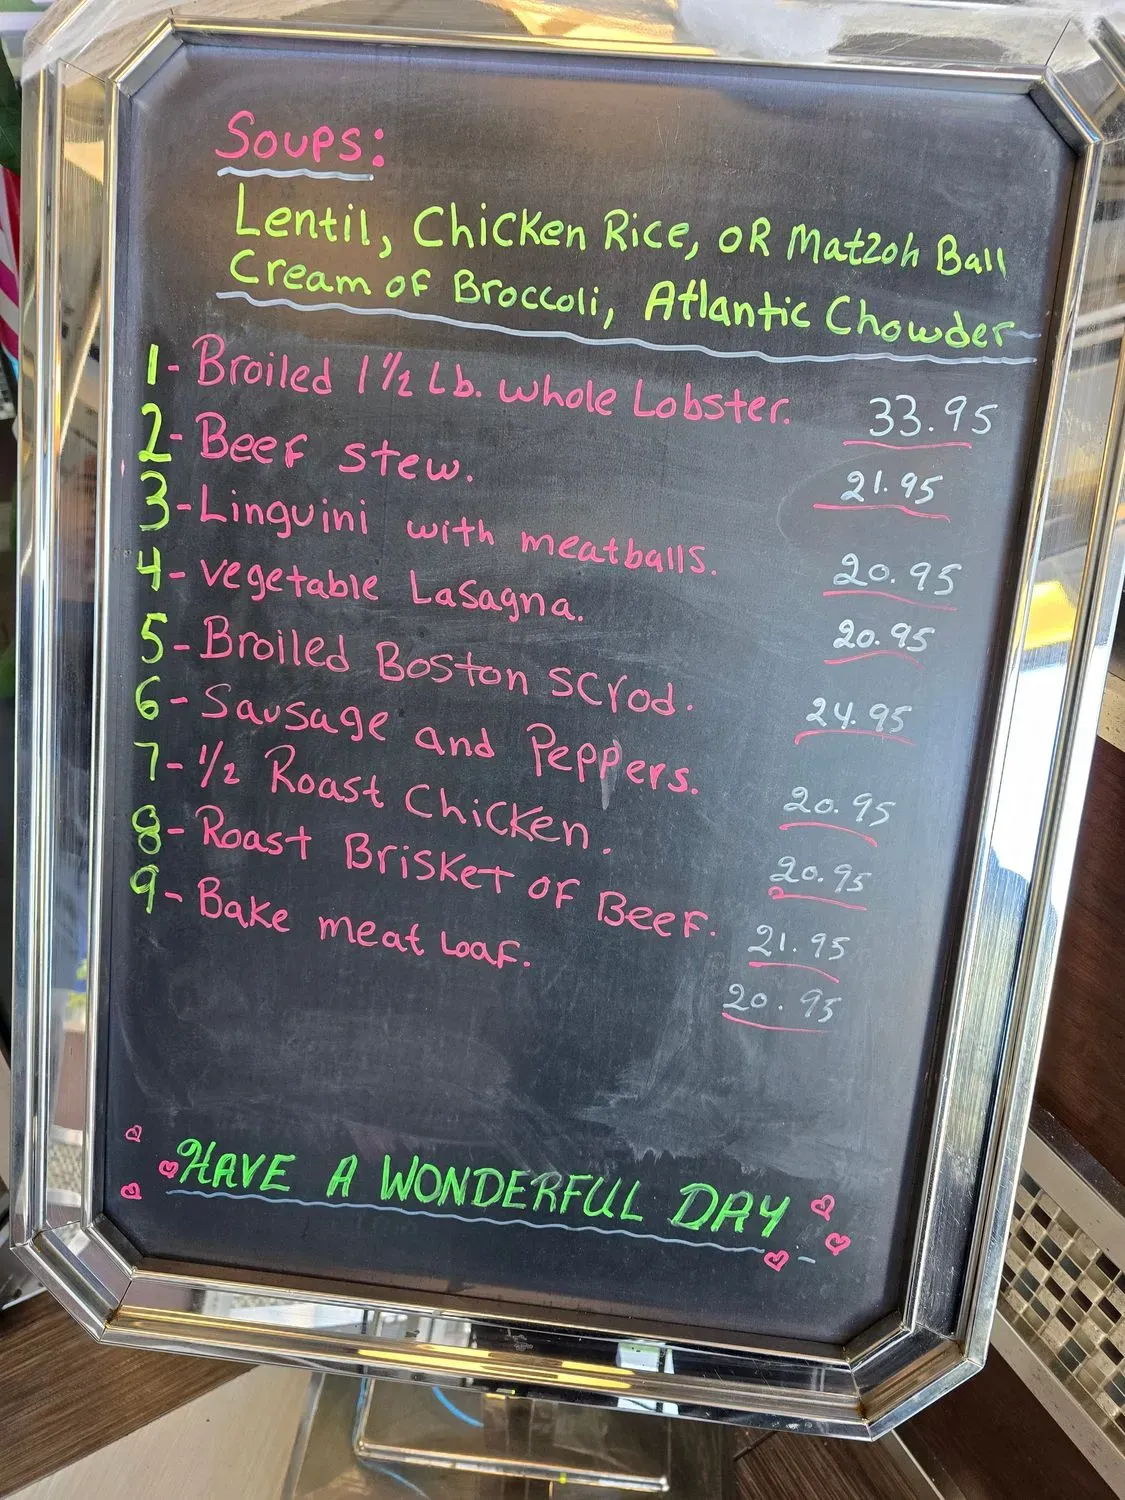 Soups:
Lentil, Chicken Rice, OR Matzoh Ball
Cream of Broccoli, Atlantic Chowder
1- Broiled 1 1/2 Lb. whole Lobster. 33.95
2- Beef stew. 21.95
3- Linguini with meatballs. 20.95
4- vegetable Lasagna. 20.95
5- Broiled Boston scrod. 24.95
6- Sausage and Peppers. 20.95
7- 1/2 Roast Chicken. 20.95
8- Roast Brisket of Beef. 21.95
9- Bake meat Loaf. 20.95
HAVE A WONDERFUL DAY